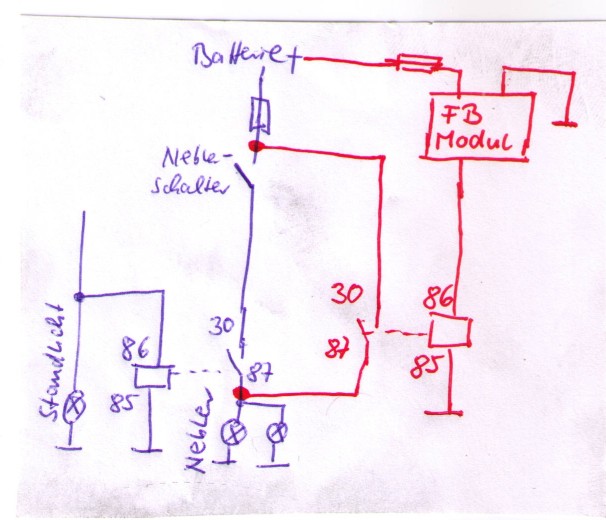 Batterie +
FB
Modul
Nebler-
schalter
30
86
30
86
87
Standlicht
87
85
85
Nebler